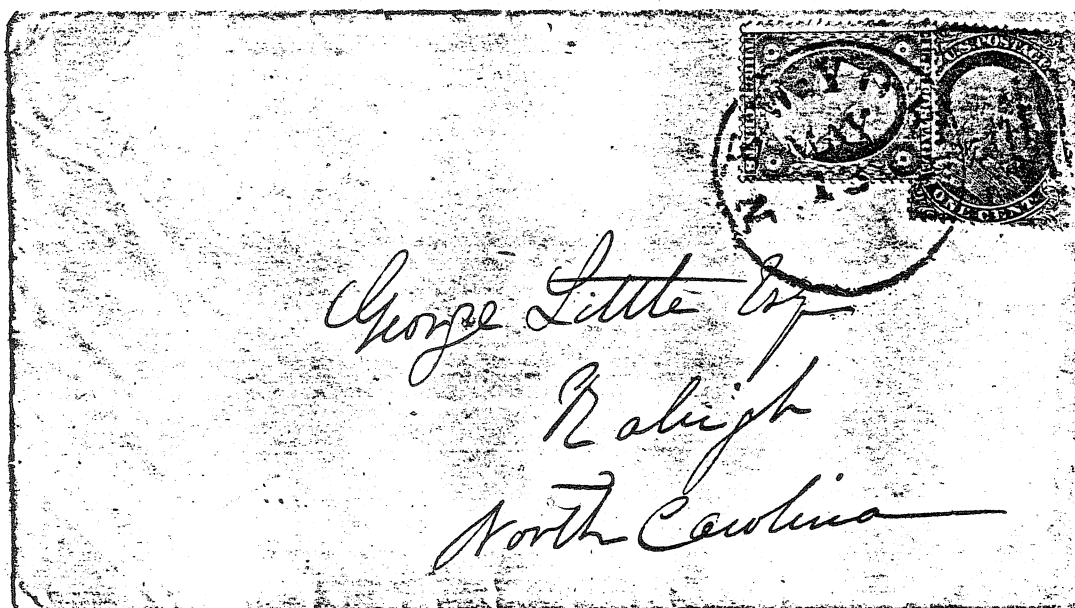 U.S. POSTAGE
ONE CENT
George Little Esq
Raleigh
North Carolina